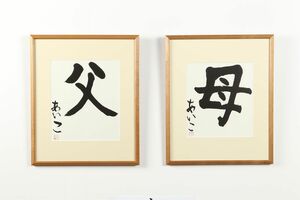 父
あいこ
母
あいこ